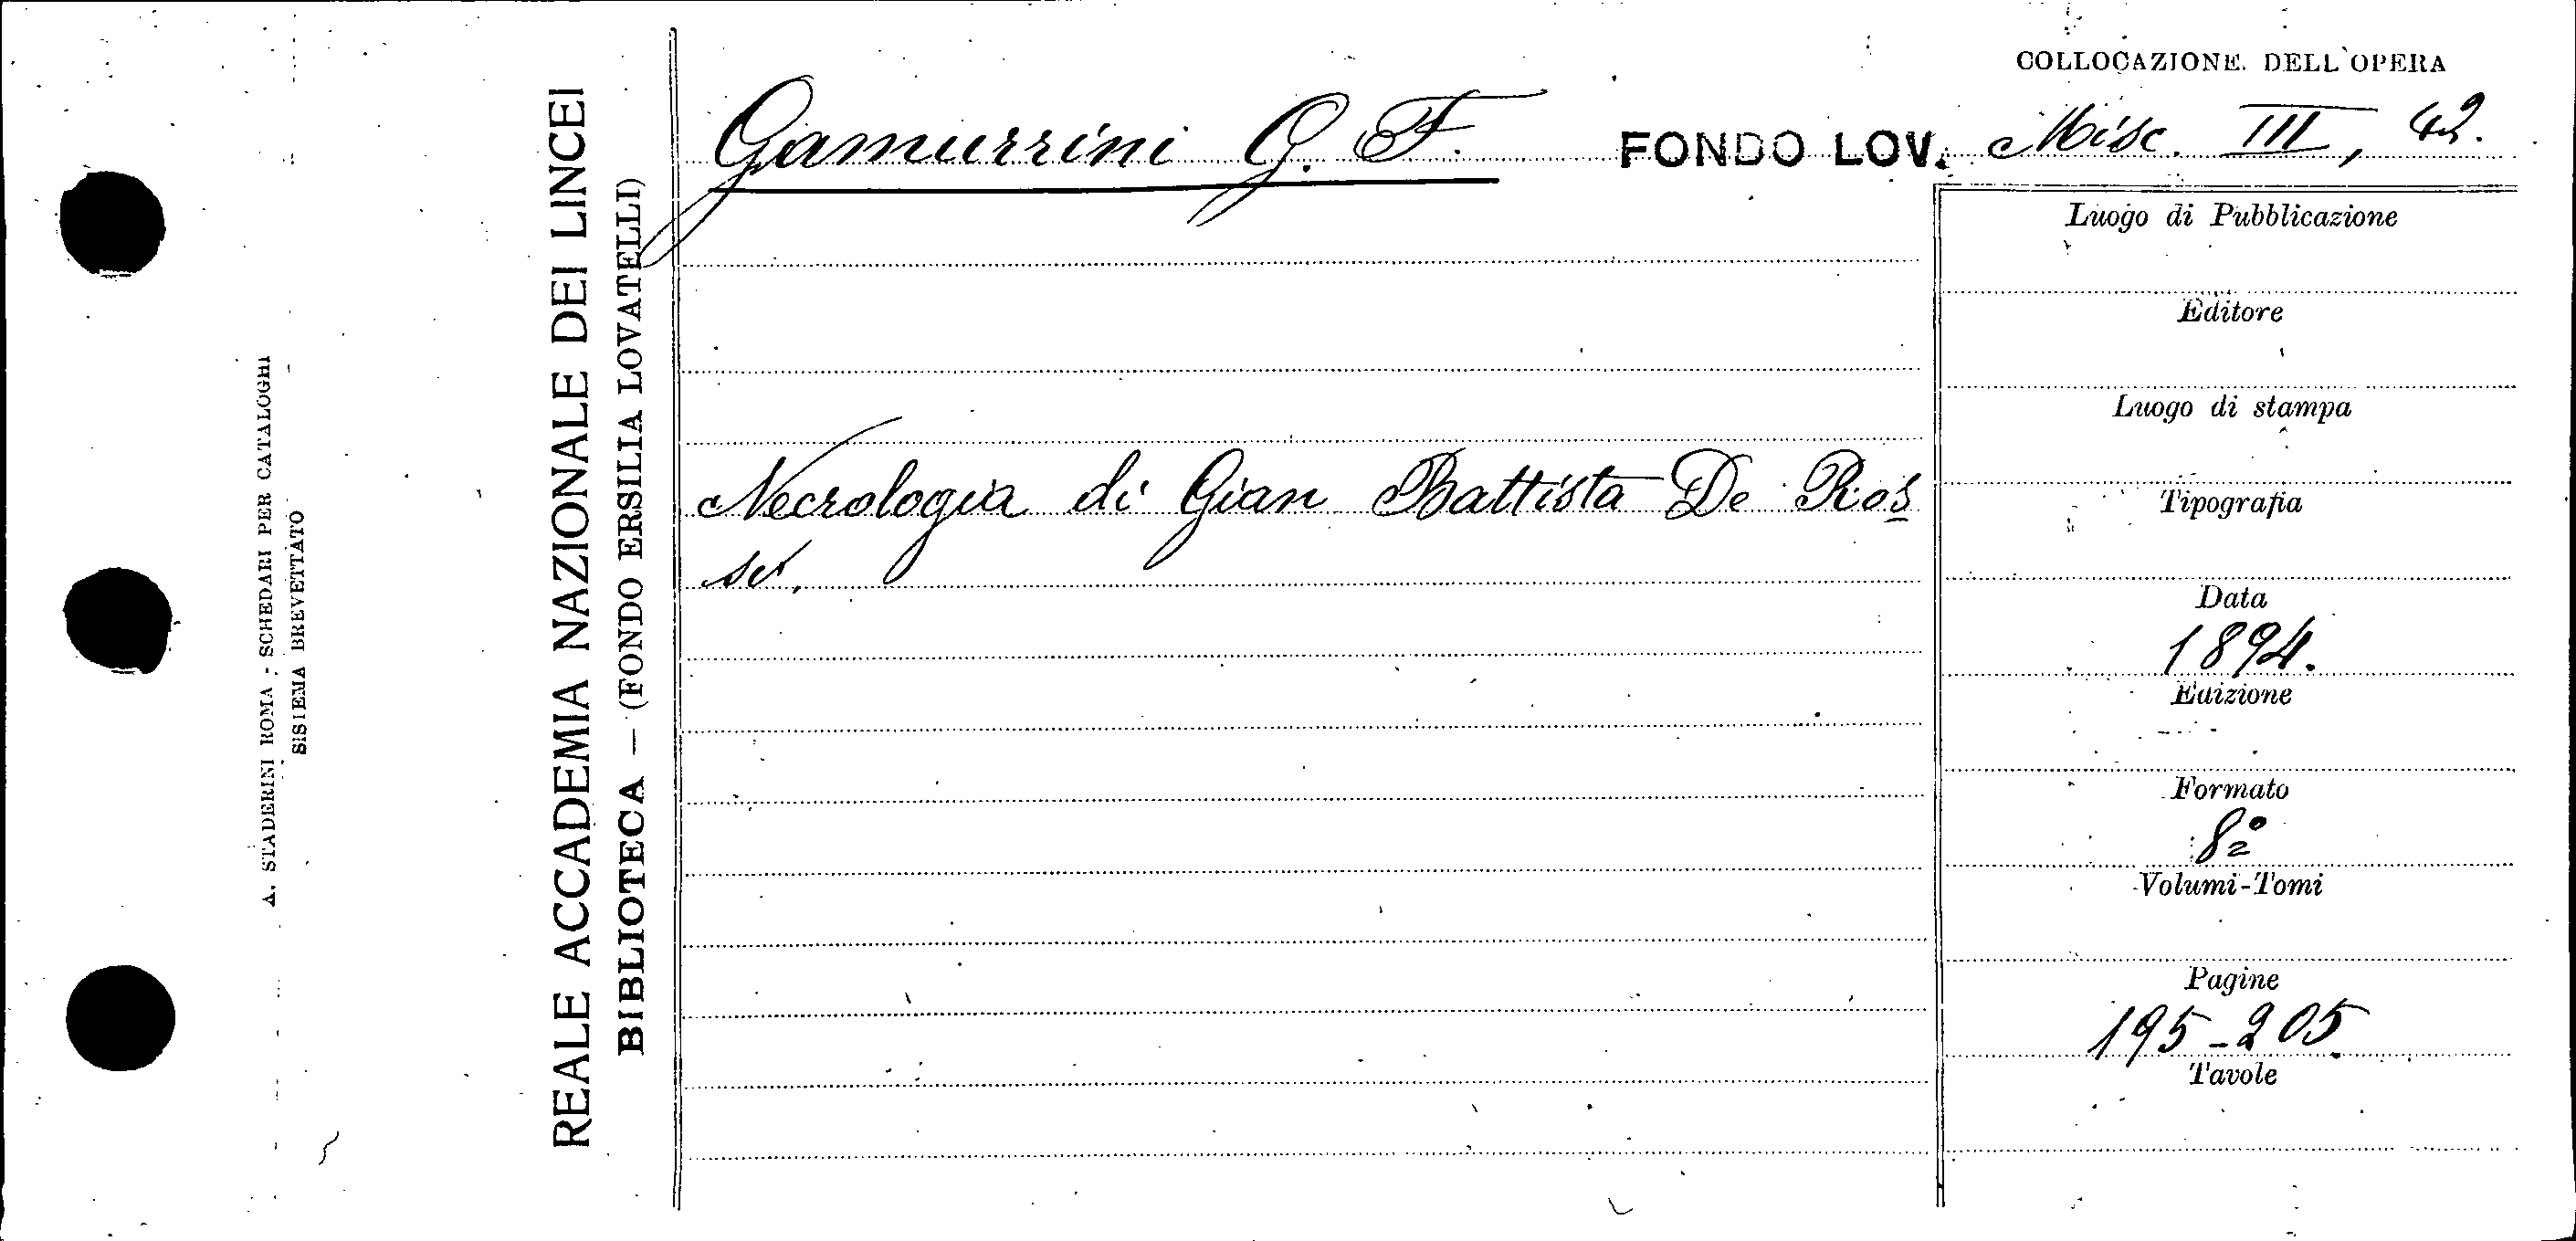 A. STADERINI ROMA - SCHEDARI PER CATALOGHI
SISTEMA BREVETTATO
REALE ACCADEMIA NAZIONALE DEI LINCEI
BIBLIOTECA — (FONDO ERSILIA LOVATELLI)
COLLOCAZIONE DELL'OPERA
Gamurrini G. F. FONDO LOV. Misc. III, 42.
Necrologia di Gian Battista De Ros
si.
Luogo di Pubblicazione
Editore
Luogo di stampa
Tipografia
Data
1894.
Edizione
Formato
8º
Volumi-Tomi
Pagine
195-205
Tavole